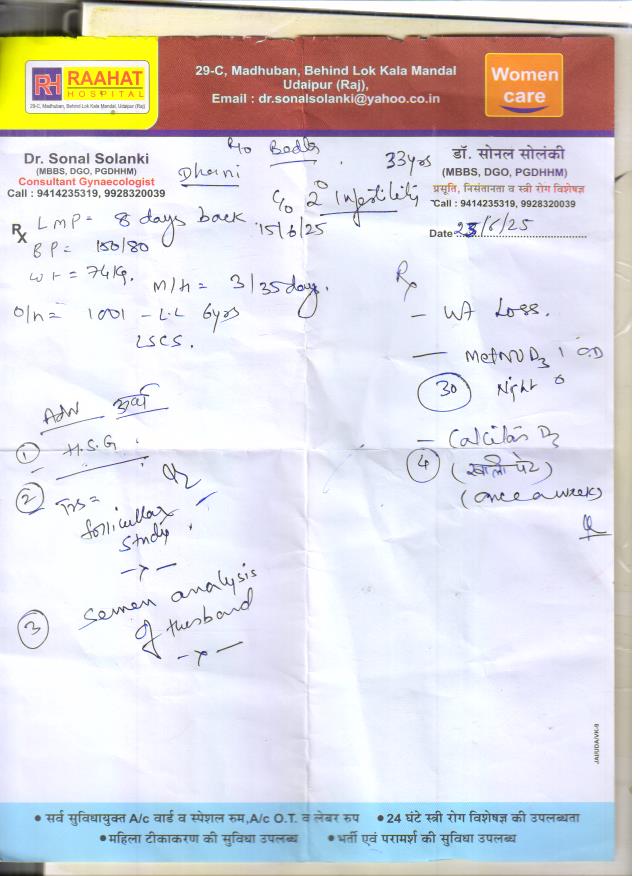 RH RAAHAT
HOSPITAL
29-C, Madhuban, Behind Lok Kala Mandal, Udaipur (Raj)
29-C, Madhuban, Behind Lok Kala Mandal
Udaipur (Raj),
Email : dr.sonalsolanki@yahoo.co.in
Women
care
Dr. Sonal Solanki
(MBBS, DGO, PGDHHM)
Consultant Gynaecologist
Call : 9414235319, 9928320039
R/o Bedla
33yrs
डॉ. सोनल सोलंकी
(MBBS, DGO, PGDHHM)
प्रसूति, निसंतानता व स्त्री रोग विशेषज्ञ
Call : 9414235319, 9928320039
Date 23/6/25
C/o 2° Infertility
Rx LMP = 8 days back 15/6/25
BP = 150/80
Wt = 74Kg.
M/H = 3/35 days.
O/H = 1001 - L.L 6yrs
LSCS.
Rx
- Wt Loss.
- D3 1 OD
30 Night
Adv
① H.S.G.
- D3
④ (खाली पेट)
(once a week)
② TVS =
follicular
study.
-x-
③ Semen analysis
of Husband
-x-
JAI/UDA/VK-9
• सर्व सुविधायुक्त A/c वार्ड व स्पेशल रुम,A/c O.T. व लेबर रुप • 24 घंटे स्त्री रोग विशेषज्ञ की उपलब्धता
• महिला टीकाकरण की सुविधा उपलब्ध • भर्ती एवं परामर्श की सुविधा उपलब्ध